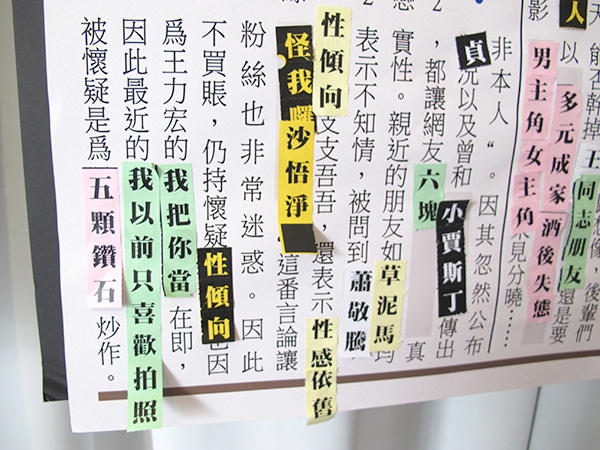 人
能否幹掉王
想像，後輩們
同志朋友還是要
影以多元成家酒後失態
男主角女主角見分曉……
非本人“。因其忽然公布
貞況以及曾和小賈斯丁傳出
2，都讓網友六塊真
實性。親近的朋友如草泥馬均
2表示不知情，被問到蕭敬騰
性傾向支吾吾，還表示性感依舊
怪我囉沙悟淨這番言論讓
粉絲也非常迷惑。因此
不買賬，仍持懷疑性傾向也因
爲王力宏的我把你當在即，
因此最近的我以前只喜歡拍照
被懷疑是爲五顆鑽石炒作。